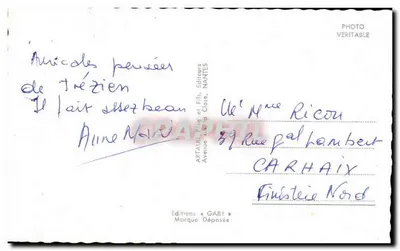 PHOTO
VERITABLE
Amicales pensées
de Trézien
Il fait assez beau
Anne Marie
ARTAUD Père et Fils, Editeurs
Avenue de la Close, NANTES
Mr Mme Ricou
39 Rue gal Lambert
CARHAIX
Finistère Nord
Editions « GABY »
Marque Déposée